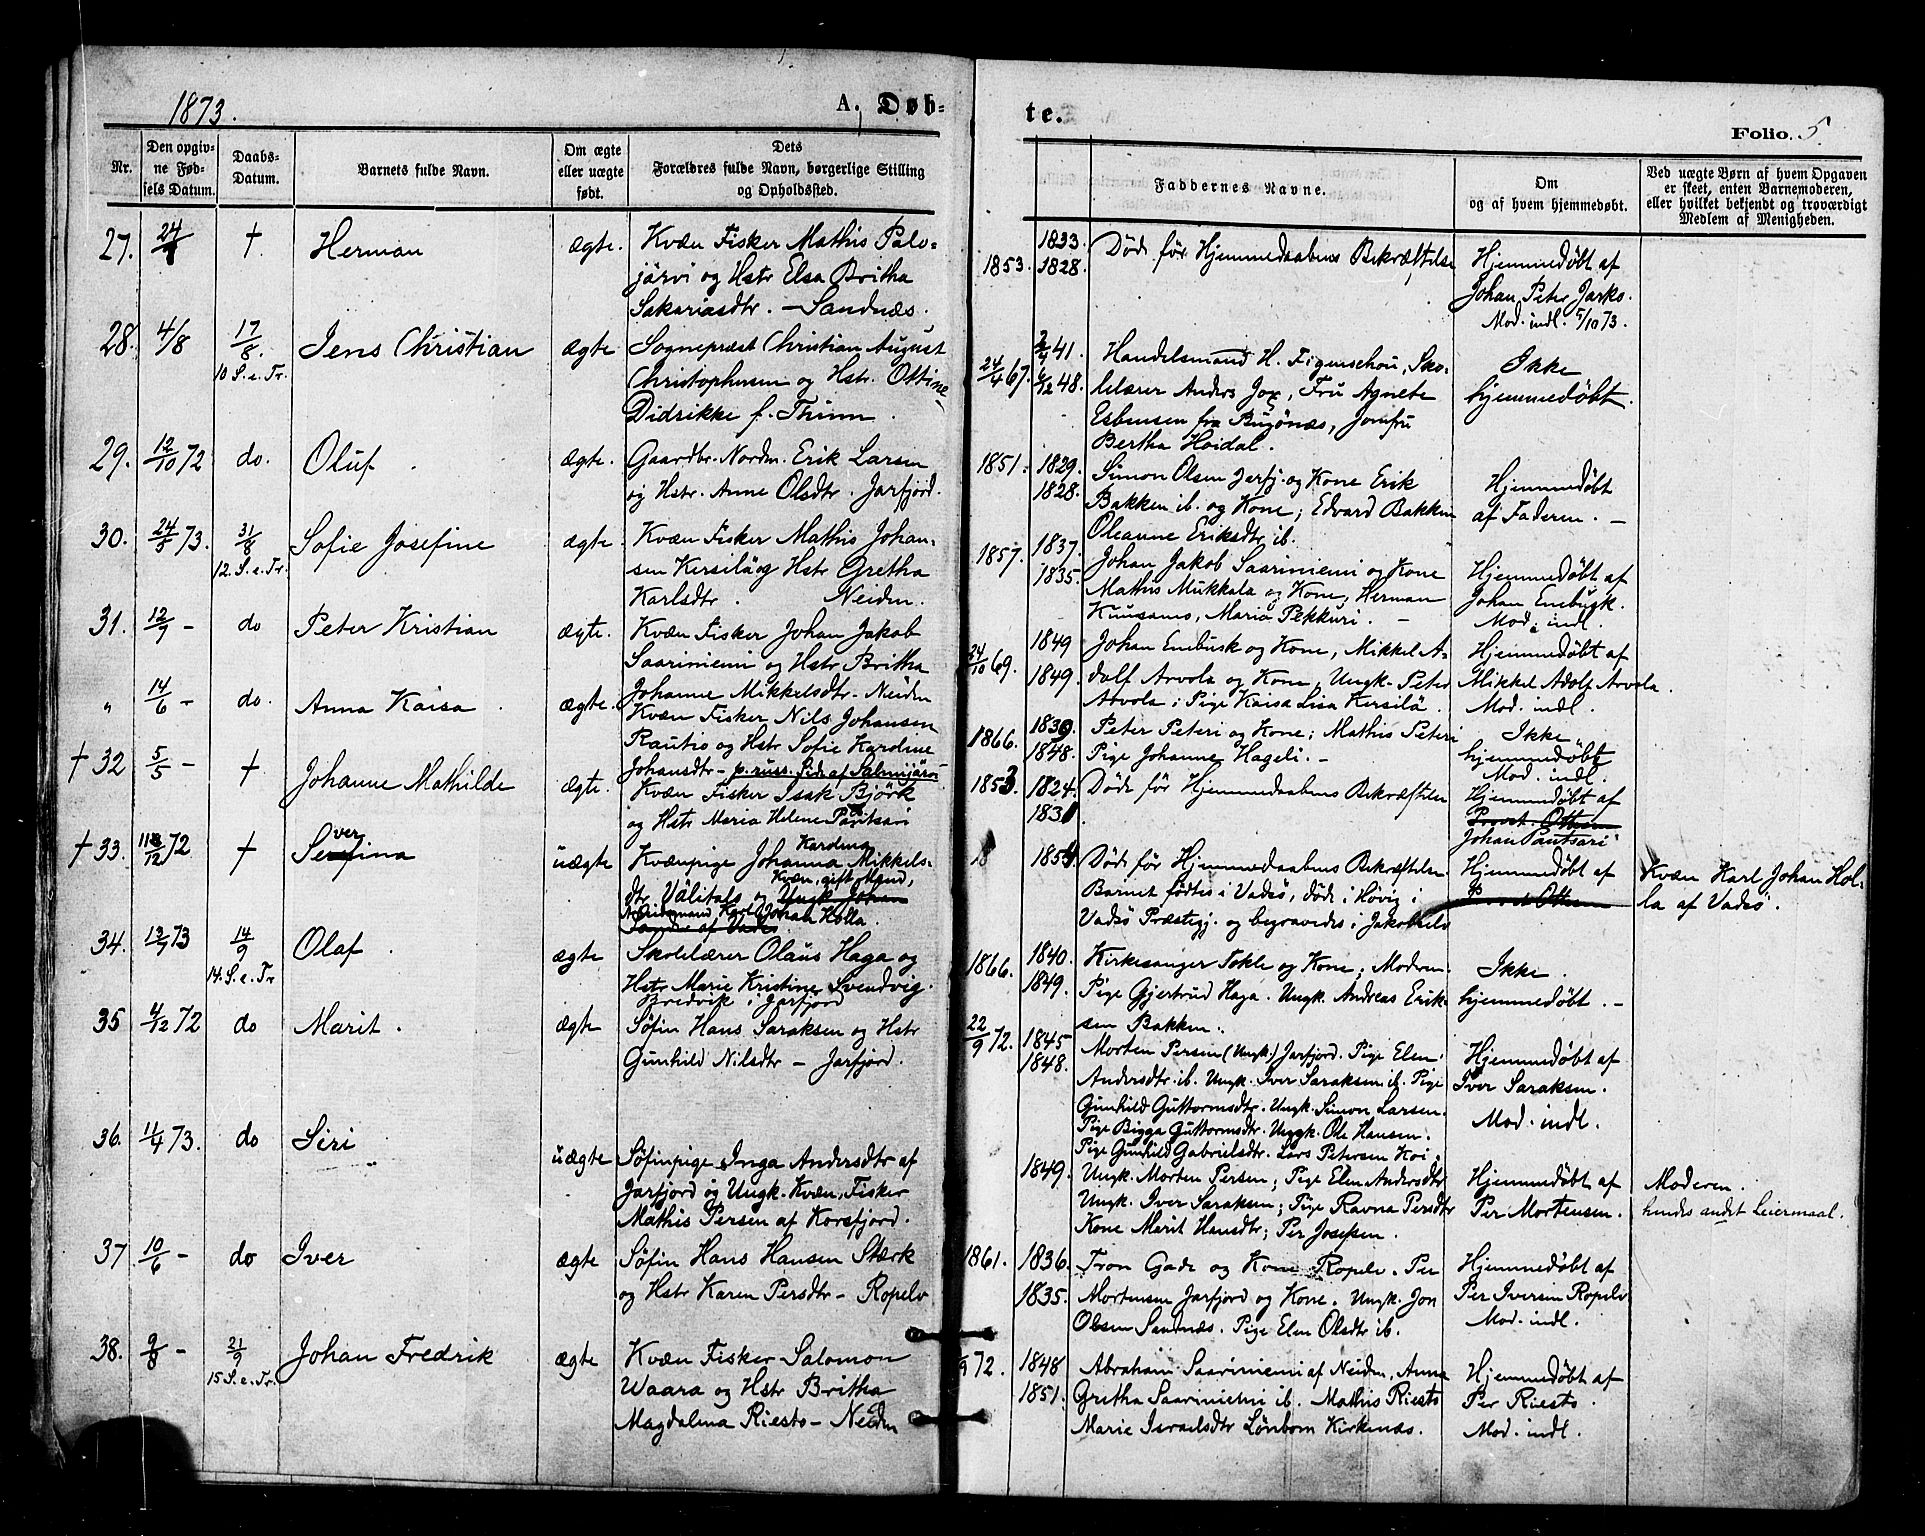 1873.
A. Døb-
Nr.
Den opgiv-
ne Fød-
sels Datum.
Daabs-
Datum.
Barnets fulde Navn.
Om ægte
eller uægte
født.
Dets
Forældres fulde Navn, borgerlige Stilling
og Opholdssted.
27.
†
Herman
ægte.
Kvæn Fisker Mathis Palo-
järvi og Hstr Elsa Britha
Sakariasdtr. - Sandnæs.
28.
4/8
17/8.
10 S. e. Tr.
Jens Christian
ægte
Sognepræst Christian August
Christophersen og Hstr. Ottine
Didrikke f. Thinn.
29.
12/10 72
do.
Oluf
ægte.
Gaardbr. Nordm. Erik Larsen
og Hstr. Anne Olsdtr. Jarfjord.
30.
24/5 73.
31/8
12. S. e. Tr.
Sofie Josefine
ægte.
Kvæn Fisker Mathis Johan-
sen Kersilä og Hstr Gretha
Karlsdtr. Neidn.
31.
12/7 -
do
Peter Kristian
ægte.
Kvæn Fisker Johan Jakob
Saariniemi og Hstr Britha
Johanne Mikkelsdtr - Neidn
"
14/6 -
do.
Anna Kaisa
ægte.
Kvæn Fisker Nils Johansen
Rautio og Hstr Sofie Karoline
Johansdtr - p. russ. Side af Salmijärvi
† 32
5/5 -
†
Johanne Mathilde
ægte.
Kvæn Fisker Isak Björk
og Hstr Maria Helene Pautsari
† 33.
/12 72
†
Severina
uægte
Kvænpige Johanna Karolina Mikkels-
dtr Välitalo og Kvæn, gift Mand,
Arbeidsmand Karl Johan Holla.
34.
73
14/9
14. S. e. Tr
Olaf
ægte
Skolelærer Olaus Haga og
Hstr Marie Kristine Svendvig.
Bredvik i Jarfjord
35
4/12 72
do
Marit.
ægte
Søfin Hans Saraksen og Hstr
Gunhild Nilsdtr - Jarfjord.
36.
11/4 73.
do
Siri
uægte
Søfinpige Inga Andersdtr af
Jarfjord og Ungk. Kvæn, Fisker
Mathis Persen af Korsfjord.
37
10/6 -
do
Iver
ægte
Søfin Hans Hansen Stærk
og Hstr Karen Persdtr - Ropelv
38.
9/8 -
21/9
15 S. e. Tr.
Johan Fredrik
ægte
Kvæn Fisker Salomon
Waara og Hstr Britha
Magdalena Riesto - Neidn
te.
Folio. 5
Faddernes Navne.
Om
og af hvem hjemmedøbt.
Ved uægte Børn af hvem Opgaven
er skeet, enten Barnemoderen,
eller hvilket bekjendt og troværdigt
Medlem af Menigheden.
1853.
1833.
1828.
Døde før Hjemmedaabens Bekræftelse
Hjemmedøbt af
Johan Peter Jarko.
Mod. indl. 5/10 73.
24/4 67.
41.
48.
Handelsmand H. Figenschou, Sko-
lelærer Anders Jox, Fru Agnete
Esbensen fra Bugönæs, Jomfru
Bertha Hoidal.
Ikke
hjemmedøbt.
1851.
1829.
1828.
Simon Olsen Jarfj. og Kone Erik
Bakken ib. og Kone; Edvard Bakken
Oleanne Eriksdtr ib.
Hjemmedøbt
af Faderen. -
1857.
1837.
1835.
Johan Jakob Saariniemi og Kone
Mathis Mukkala og Kone, Herman
Kuusamo, Maria Pekkuri. -
Hjemmedøbt af
Johan Enebusk.
Mod. indl.
24/10 69.
1849
1849.
Johan Enebusk og Kone, Mikkel A-
dolf Arvola og Kone, Ungk. Peter
Arvola; Pige Kaisa Lisa Kersilä.
Hjemmedøbt af
Mikkel Adolf Arvola.
Mod. indl.
1866.
1839
1848.
Peter Peteri og Kone; Mathis Peteri
Pige Johanne Hageli. -
Ikke
hjemmedøbt
Mod. indl.
1853
1824.
1831
Døde før Hjemmedaabens Bekræftelse
Hjemmedøbt af
Provst. Ottesen
Johan Pautsari
18
1854.
Døde før Hjemmedaabens Bekræftelse.
Barnet fødtes i Vadsö, døde i Høvig i
Vadsö Præstegj. og begravedes i Jakobselv
Hjemmedøbt af
Provst Ottesen
Kvæn Karl Johan Hol-
la af Vadsö.
1866.
1840.
1849.
Kirkesanger Tokle og Kone; Moderen.
Pige Gjertrud Haga. Ungk. Andreas Erik-
sen Bakken.
Ikke
hjemmedøbt. -
22/9 72.
1845
1848.
Morten Persen (Ungk.) Jarfjord. Pige Elen
Andersdtr ib. Ungk. Iver Saraksen ib. Pige
Gunhild Guttormsdtr. Ungk. Simon Larsen.
Pige Bigga Guttormsdtr. Ungk. Ole Hansen.
Pige Gunhild Gabrielsdtr. Lars Petersen Koi.
Hjemmedøbt af
Iver Saraksen.
Mod. indl.
1849.
Ungk. Morten Persen; Pige Elen Andersdtr
Ungk. Iver Saraksen; Pige Ravna Persdtr
Kone Marit Hansdtr; Per Josefsen.
Hjemmedøbt af
Per Mortensen.
Moderen.
hendes andet Leiermaal.
1861.
1836.
1835.
Tron Gade og Kone Ropelv. Per
Mortensen Jarfjord og Kone. Ungk. Jon
Olsen Sandnæs. Pige Elen Olsdtr ib.
Hjemmedøbt af
Per Iversen Ropelv
Mod. indl.
/9 72.
1848
1851.
Abraham Saariniemi af Neiden, Anna
Gretha Saariniemi ib. Mathis Riesto
Marie Israelsdtr Lönbom Kirkenæs.
Hjemmedøbt af
Per Riesto.
Mod. indl.